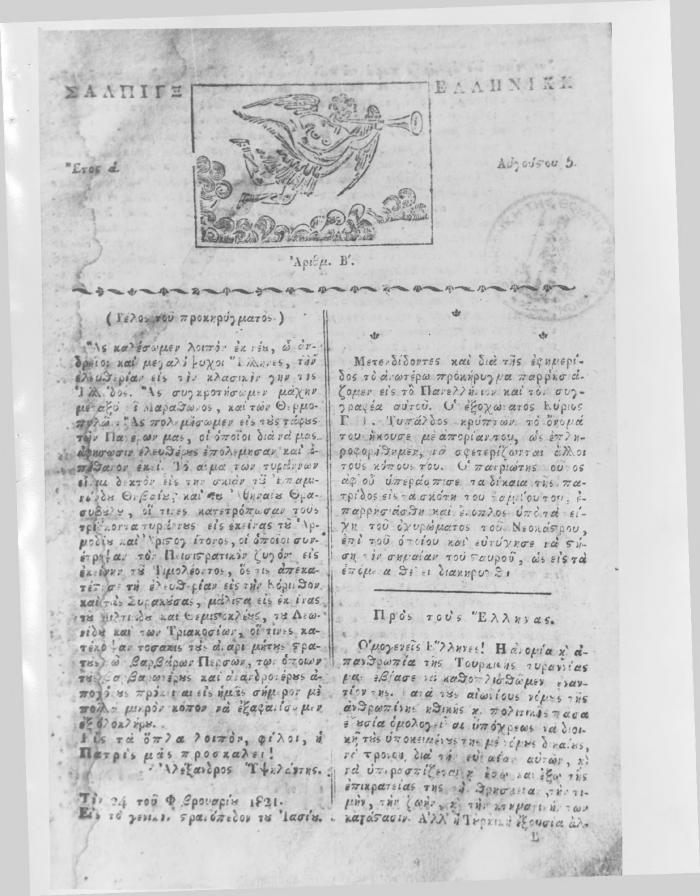 ΣΑΛΠΙΓΞ ΕΛΛΗΝΙΚΗ
Ἔτος ά. Αὐγούστου 5.
Ἀριθμ. Β'.
(Τέλος τοῦ προκηρύγματος.)
Ἂς καλέσωμεν λοιπὸν ἐκ νέυ, ὦ ἀν-
δρεῖοι καὶ μεγαλόψυχοι Ἕλληνες, τὴν
ἐλευθερίαν εἰς τὴν κλασικὴν γῆν τῆς
Ἑλλάδος. Ἂς συγκροτήσωμεν μάχην
μεταξὺ τῦ Μαραθῶνος, καὶ τῶν Θερμο-
πυλῶν. Ἂς πολεμήσωμεν εἰς τὺς τάφυς
τῶν Πατέρων μας, οἱ ὁποῖοι διὰ νὰ μᾶς
ἀφήσωσιν ἐλευθέρυς ἐπολέμησαν καὶ ἀ-
πέθανον ἐκεῖ. Τὸ αἷμα τῶν τυράννων
εἶναι δεκτὸν εἰς τὴν σκιὰν τῦ Ἐπαμι-
νώνδυ Θηβαίυ, καὶ τῦ Ἀθηναίυ Θρα-
συβύλυ, οἵ τινες κατετρόπωσαν τοὺς
τριάκοντα τυράννυς εἰς ἐκείνας τῦ Ἁρ-
μοδίυ καὶ Ἀριστογείτονος, οἱ ὁποῖοι συν-
έτριψαν τὸν Πεισιστρατικὸν ζυγὸν εἰς
ἐκείνην τῦ Τιμολέοντος, ὅς τις ἀπεκα-
τέστησε τὴν ἐλευθερίαν εἰς τὴν Κόρινθον
καὶ τὰς Συρακύσας, μάλιστα εἰς ἐκείνας
τῦ Μιλτιάδυ καὶ Θεμιστοκλέυς, τῦ Λεω-
νίδυ καὶ τῶν Τριακοσίων, οἵ τινες κα-
τέκοψαν τοσάκις τὺς ἀναριθμήτυς στρα-
τὺς τῶν βαρβάρων Περσῶν, τῶν ὁποίων
τὺς βαρβαροτέρυς καὶ ἀνανδροτέρυς ἀ-
πογόνυς πρόκειται εἰς ἡμᾶς σήμερον μὲ
πολλὰ μικρὸν κόπον νὰ ἐξαφανίσωμεν
ἐξ ὁλοκλήρυ.
Εἰς τὰ ὅπλα λοιπόν, φίλοι, ἡ
Πατρὶς μᾶς προσκαλεῖ!
Ἀλέξανδρος Ὑψηλάντης.
Τὴν 24 τοῦ Φεβρουαρίυ 1821.
Εἰς τὸ γενικὸν στρατόπεδον τῦ Ἰασίυ.
Μεταδίδοντες καὶ διὰ τῆς ἐφημερί-
δος τὸ ἀνωτέρω προκήρυγμα παρρησιά-
ζομεν εἰς τὸ Πανελλήνιον καὶ τὸν συγ-
γραφέα αὐτοῦ. Ὁ ἐξοχώτατος Κύριος
Γ. Τυπάλδος κρύπτων τὸ ὄνομά
του ἤκουσε μὲ ἀπορίαν του, ὡς ἐπλη-
ροφορήθημεν, νὰ σφετερίζωνται ἄλλοι
τοὺς κόπους του. Ὁ πατριώτης οὗτος
ἀφ' οὗ ὑπεράσπισε τὰ δίκαια τῆς πα-
τρίδος εἰς τὰ σκότη τοῦ ταμείου του, ἐ-
παρρησιάσθη καὶ ἔνοπλος ὑπὸ τὰ τεί-
χη τοῦ ὀχυρώματος τοῦ Νεοκάστρου,
ἐπὶ τοῦ ὁποίου καὶ εὐτύχησε νὰ στή-
σῃ τὴν σημαίαν τοῦ σταυροῦ, ὡς εἰς τὰ
ἑπόμενα θέλει διακηρυχθῆ.
Πρὸς τοὺς Ἕλληνας.
Ὁμογενεῖς Ἕλληνες! Ἡ ἀνομία κ̀ ἀ-
πανθρωπία τῆς Τουρκικῆς τυραννίας
μᾶς ἐβίασε νὰ καθοπλισθῶμεν ἐναν-
τίον της. Κατὰ τοὺς αἰωνίους νόμυς τῆς
ἀνθρωπίνης ἠθικῆς κ̀ πολιτικῆς πᾶσα
ἐξουσία ὁμολογεῖται ὑπόχρεως νὰ διοι-
κῇ τὺς ὑποκειμένυς της μὲ νόμυς δικαίυς,
νὰ προνοῇ διὰ τὴν εὐτυχίαν αὐτῶν, κ̀
νὰ ὑπερασπίζεται κ̀ ἔσω καὶ ἔξω τῆς
ἐπικρατείας της τὴν θρησκείαν, τὴν τι-
μήν, τὴν ζωήν, κ̀ τὴν κτηματικήν των
κατάστασιν. Ἀλλ' ἡ Τυρκικὴ ἐξουσία ἀλ-